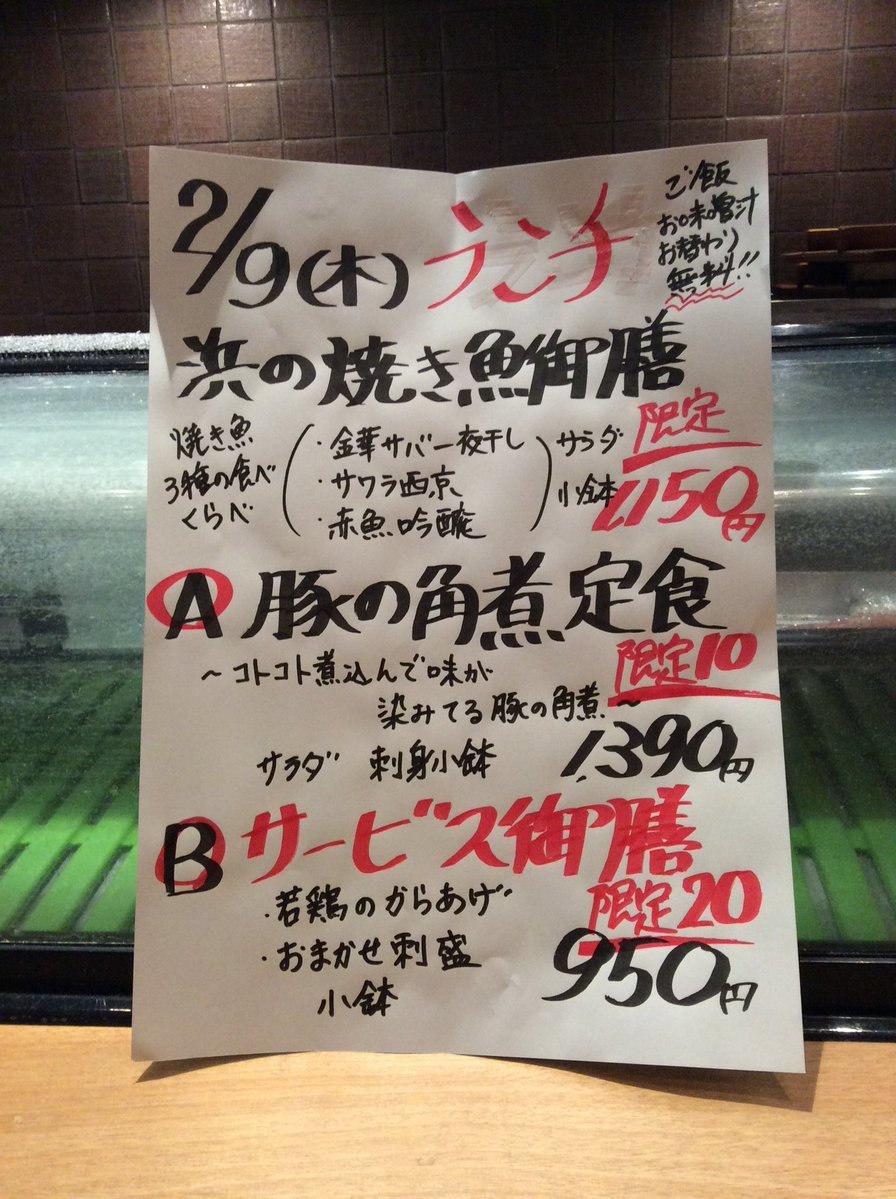 2/9(木) ランチ
ご飯
お味噌汁
お替わり
無料!!
浜の焼き魚御膳
限定
焼き魚
3種の食べ
くらべ
・金華サバ一夜干し
・サワラ西京
・赤魚吟醸
サラダ
小鉢
1,150円
A 豚の角煮定食
限定10
~コトコト煮込んで味が
染みてる豚の角煮~
サラダ 刺身小鉢
1,390円
B サービス御膳
限定20
・若鶏のからあげ
・おまかせ刺盛
小鉢
950円